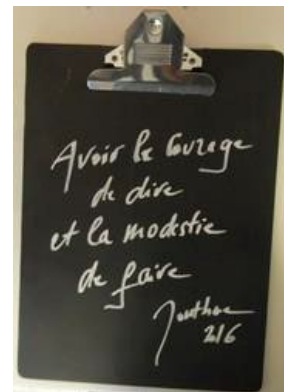 Avoir le courage
de dire
et la modestie
de faire
216